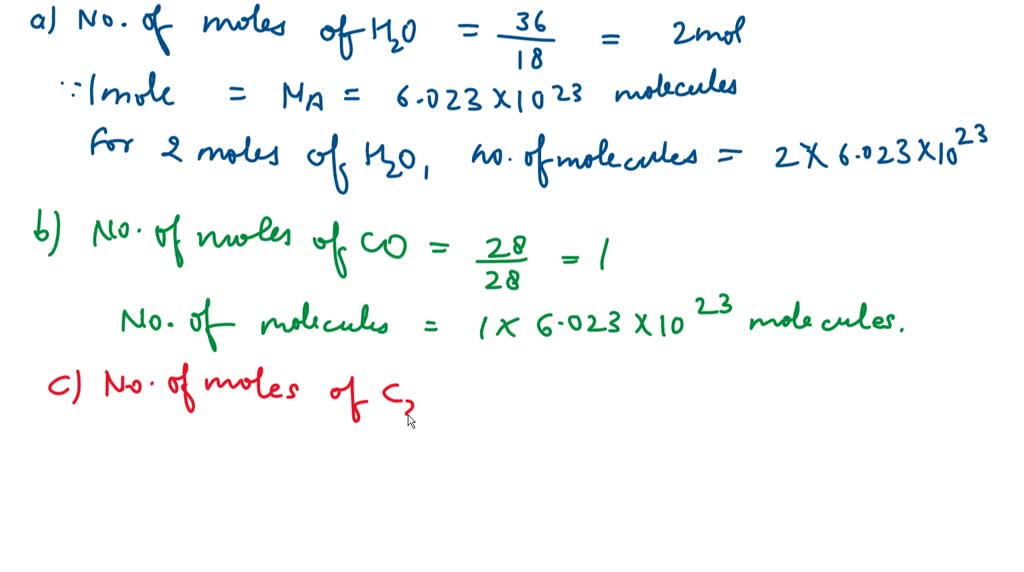 a) No. of moles of H₂O = 36/18 = 2mol
∵ 1mole = NA = 6.023×10²³ molecules
for 2 moles of H₂O, no. of molecules = 2×6.023×10²³
b) No. of moles of CO = 28/28 = 1
No. of molecules = 1×6.023×10²³ molecules.
c) No. of moles of C₂